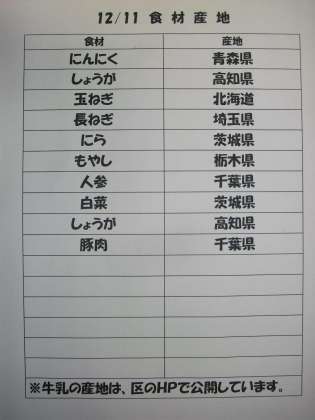 12/11 食材産地
食材 産地
にんにく 青森県
しょうが 高知県
玉ねぎ 北海道
長ねぎ 埼玉県
にら 茨城県
もやし 栃木県
人参 千葉県
白菜 茨城県
しょうが 高知県
豚肉 千葉県
※牛乳の産地は、区のHPで公開しています。